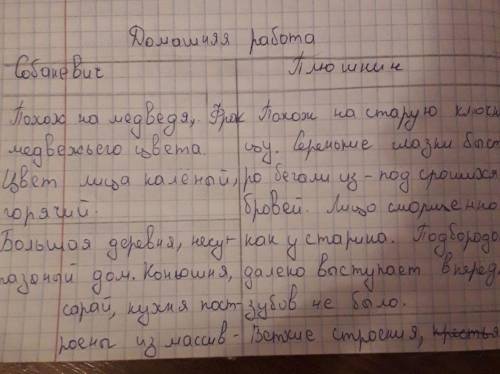 Домашняя работа
Собакевич
Плюшкин
Похож на медведя, Фрак
медвежьего цвета.
Цвет лица каленый,
горячий.
Большая деревня, несу-
разный дом. Конюшня,
сарай, кухня пост-
роены из массив-
Похож на старую ключ
цу. Серенькие глазки быст
ро бегали из-под сросшихся
бровей. Лицо сморщенно
как у старика. Подбородо
далеко выступает вперед,
зубов не было.
Ветхие строения,